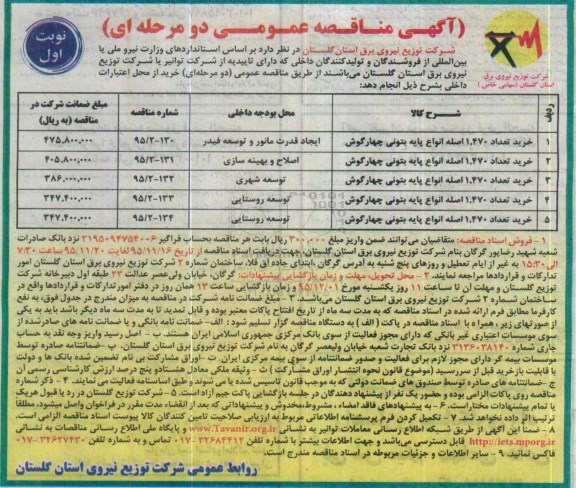 (آگهی مناقصه عمومی دو مرحله ای)
نوبت اول
شرکت توزیع نیروی برق استان گلستان (سهامی خاص)
شرکت توزیع نیروی برق استان گلستان در نظر دارد بر اساس استانداردهای وزارت نیرو ملی یا
بین‌المللی از فروشندگان و تولیدکنندگان داخلی که دارای تاییدیه از شرکت توانیر یا شرکت توزیع
نیروی برق استان گلستان می‌باشند از طریق مناقصه عمومی (دو مرحله‌ای) خرید از محل اعتبارات
داخلی بشرح ذیل انجام دهد:
ردیف شرح کالا محل بودجه داخلی شماره مناقصه مبلغ ضمانت شرکت در مناقصه (به ریال)
۱ خرید تعداد ۱،۴۷۰ اصله انواع پایه بتونی چهارگوش ایجاد قدرت مانور و توسعه فیدر ۹۵/۲-۱۳۰ ۴۷۵،۸۰۰،۰۰۰
۲ خرید تعداد ۱،۴۷۰ اصله انواع پایه بتونی چهارگوش اصلاح و بهینه سازی ۹۵/۲-۱۳۱ ۴۰۵،۸۰۰،۰۰۰
۳ خرید تعداد ۱،۴۷۰ اصله انواع پایه بتونی چهارگوش توسعه شهری ۹۵/۲-۱۳۲ ۳۸۶،۰۰۰،۰۰۰
۴ خرید تعداد ۱،۴۷۰ اصله انواع پایه بتونی چهارگوش توسعه روستایی ۹۵/۲-۱۳۳ ۳۴۷،۴۰۰،۰۰۰
۵ خرید تعداد ۱،۴۷۰ اصله انواع پایه بتونی چهارگوش توسعه روستایی ۹۵/۲-۱۳۴ ۳۴۷،۴۰۰،۰۰۰
۱ - فروش اسناد مناقصه: متقاضیان می‌توانند ضمن واریز مبلغ ۳۰۰،۰۰۰ ریال بابت هر مناقصه بحساب فراگیر ۳۱۹۵۰۹۴۷۵۴۰۰۶ نزد بانک صادرات
شعبه شهید رضاپور گرگان بنام شرکت توزیع نیروی برق استان گلستان، جهت دریافت اسناد مناقصه از تاریخ ۹۵/۱۱/۱۶ لغایت ۹۵/۱۱/۲۰ ساعت ۷:۳۰
الی ۱۵:۳۰ به غیر از ایام تعطیل و روزهای پنج شنبه به آدرس گرگان، ابتدای جاده آق قلا، ساختمان شماره ۲ شرکت توزیع نیروی برق استان گلستان امور
تدارکات و قراردادها مراجعه نمایند. ۲ - محل تحویل، مهلت و زمان بازگشایی پیشنهادات: گرگان، خیابان ولی‌عصر عدالت ۲۳ طبقه اول دبیرخانه شرکت
توزیع گلستان و مهلت آن تا ساعت ۱۱ روز یکشنبه مورخ ۹۵/۱۲/۰۱ و زمان بازگشایی ساعت ۱۳ همان روز در دفتر امور تدارکات و قراردادها واقع در
ساختمان شماره ۲ شرکت توزیع نیروی برق استان گلستان می‌باشد. ۳ - مبلغ ضمانت نامه شرکت در مناقصه به میزان مندرج در جدول فوق، به نفع
کارفرما مطابق فرم ارائه شده در اسناد مناقصه که به مدت سه ماه از تاریخ افتتاح پاکات معتبر بوده و قابل تمدید تا به مدت سه ماه دیگر باشد باید به یکی
از صورتهای زیر، همراه با اسناد مناقصه در پاکت (الف) به دستگاه مناقصه گزار تسلیم شود: الف- ضمانت نامه بانکی و یا ضمانت نامه های صادرشده از
سوی موسسات اعتباری غیر بانکی که دارای مجوز فعالیت از سوی بانک مرکزی جمهوری اسلامی ایران هستند. ب - اصل رسید واریز وجه نقد به حساب
جاری شماره ۳۱۳۶۰۳۸۱۴۰ نزد بانک تجارت شعبه خیابان ولیعصر گرگان به نام شرکت توزیع نیروی برق استان گلستان. پ - ضمانتنامه صادره توسط
موسسات بیمه گر دارای مجوز لازم برای فعالیت و صدور ضمانتنامه از سوی بیمه مرکزی ایران. ت -اوراق مشارکت بی نام تضمین شده بانک ها و دولت
با قابلیت بازخرید قبل از سررسید (موضوع قانون نحوه انتشار اوراق مشارکت) ث - وثیقه ملکی معادل هشتاد و پنج درصد ارزش کارشناسی رسمی آن
ج -ضمانتنامه های صادره توسط صندوق های ضمانت دولتی که به موجب قانون تاسیس شده یا می شوند و طبق اساسنامه فعالیت می نمایند. ۴ - ذکر شماره
مناقصه روی پاکات الزامی بوده و حضور یک نفر از پیشنهاد دهندگان در جلسه بازگشایی پاکت جیم آزاد است. ۵ - شرکت توزیع گلستان در رد یا قبول هر یک
یا تمام پیشنهادات مختار است. ۶ - به پیشنهادهای فاقد امضاء، مشروط، مخدوش و پیشنهاداتی که بعد از انقضاء مدت مقرر در فراخوان واصل میشود، مطلقا
ترتیب اثر داده نخواهد شد. ۷ - تکمیل کردن فرم پرسشنامه اطلاعاتی مربوط به ارزیابی صلاحیت تامین کنندگان کالا پیوست اسناد مناقصه الزامی است.
۸ - ضمنا این آگهی از طریق شبکه اطلاع رسانی معاملات توانیر به نشانی http://www.Tavanir.org.ir و پایگاه ملی اطلاع رسانی مناقصات به نشانی
http://iets.mporg.ir قابل دسترسی می‌باشد و جهت اطلاعات بیشتر با شماره تلفن ۳۲۶۸۴۴۱۲-۰۱۷ تماس و به شماره تلفن ۳۲۶۳۷۴۳۰-۰۱۷
فاکس نمائید. ۹ - سایر اطلاعات و جزئیات مربوطه در اسناد مناقصه مندرج است.
روابط عمومی شرکت توزیع نیروی استان گلستان